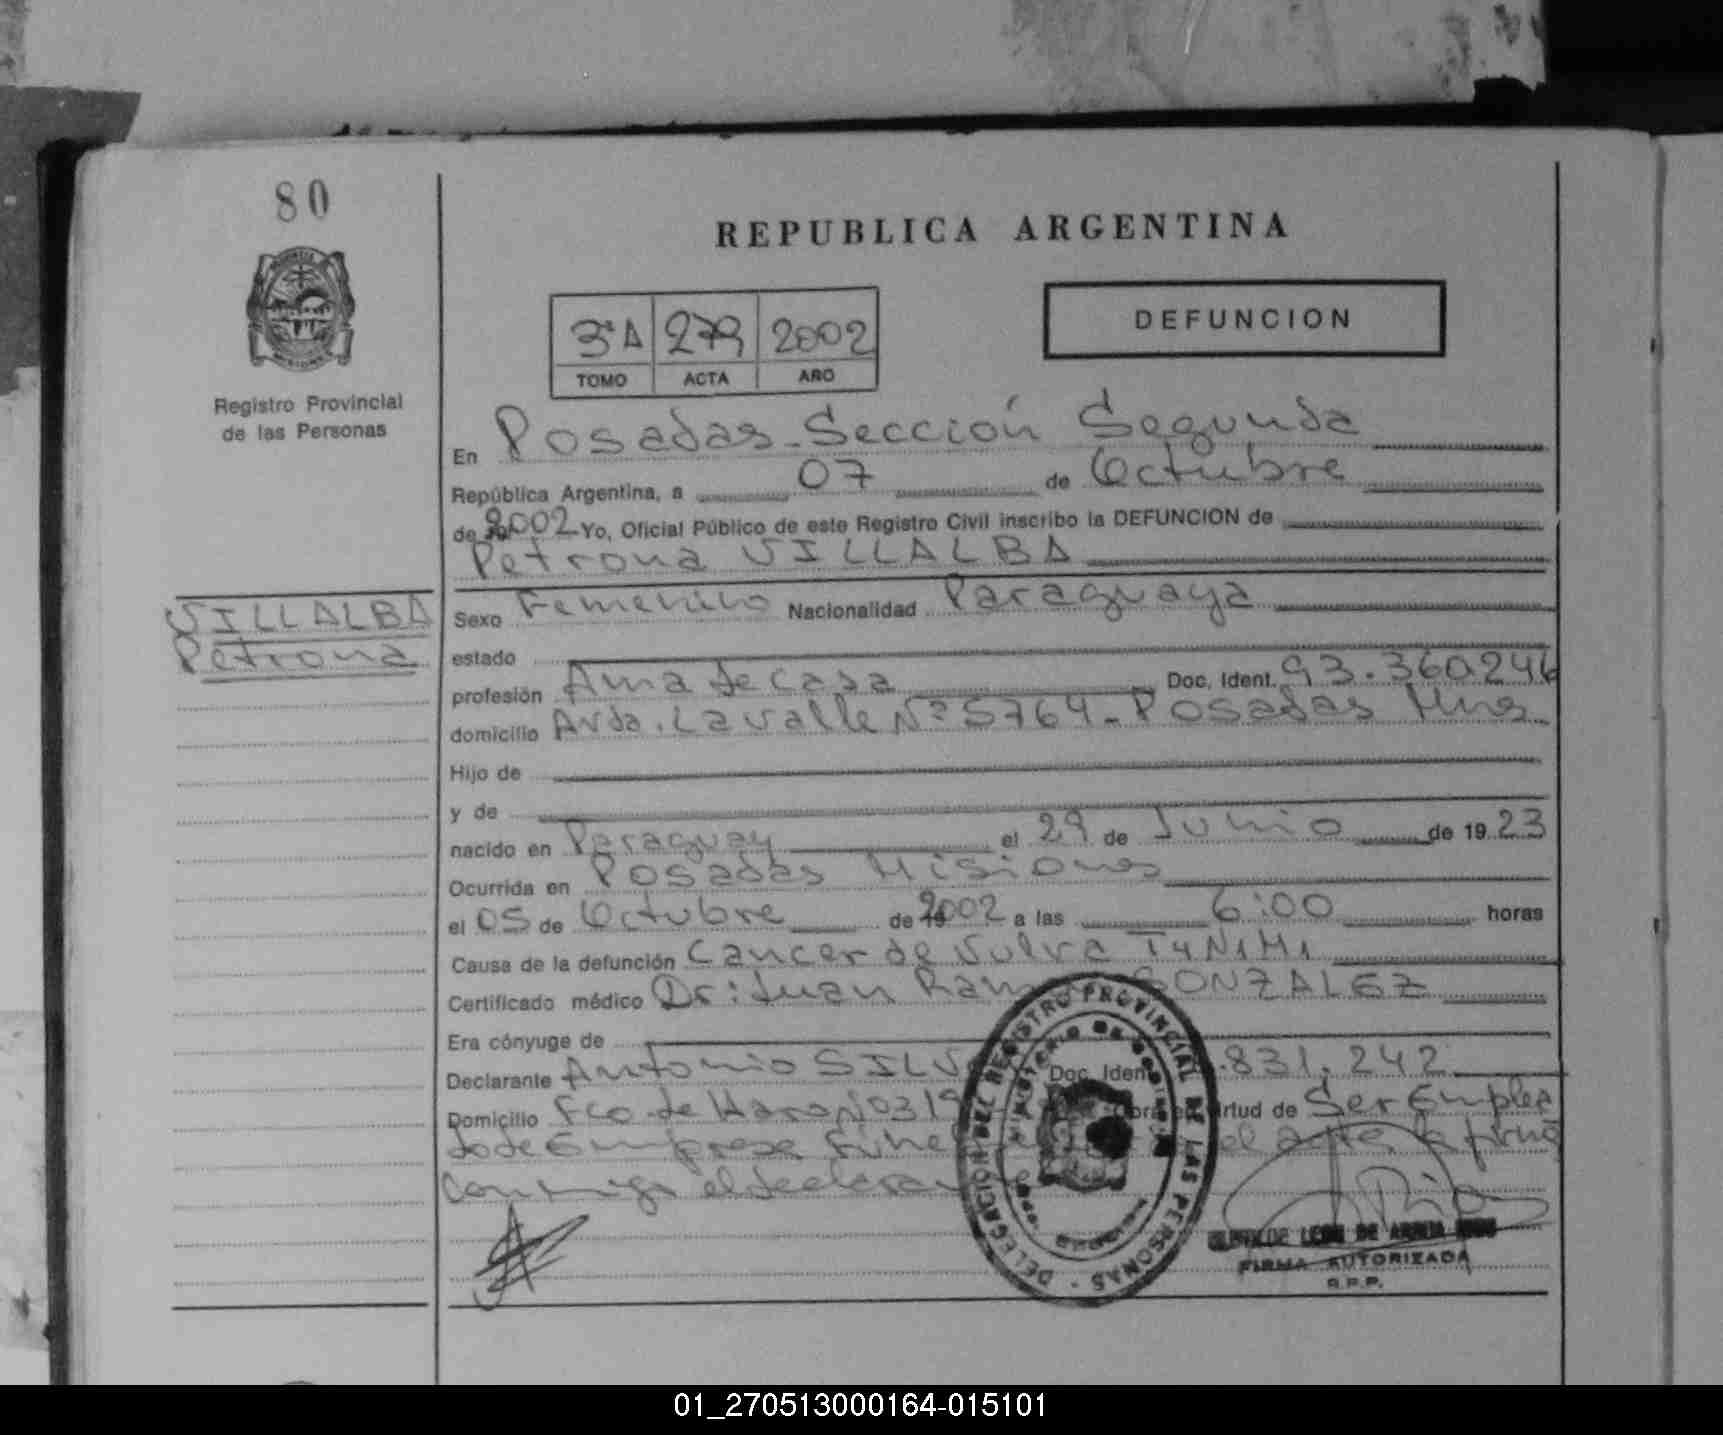 80
REPUBLICA ARGENTINA
DEFUNCION
3ªA 279 2002
TOMO ACTA AÑO
Registro Provincial
de las Personas
En Posadas - Sección Segunda
República Argentina, a 07 de Octubre
de 2002 Yo, Oficial Público de este Registro Civil inscribo la DEFUNCION de
Petrona VILLALBA
VILLALBA
Petrona
Sexo Femenino Nacionalidad Paraguaya
estado
profesión Ama de casa Doc. Ident. 93.360246
domicilio Avda. Lavalle Nº 5764 - Posadas Mnes
Hijo de
y de
nacido en Paraguay el 29 de Junio de 19 23
Ocurrida en Posadas Misiones
el 05 de Octubre de 2002 a las 6:00 horas
Causa de la defunción Cancer de Vulva T4N1M1
Certificado médico Dr: Juan GONZALEZ
Era cónyuge de
Declarante Antonio Doc. Ident 831.242
Domicilio Fco. de Haro Nº 319 Obra en virtud de Ser Emplea
do de Empresa el acta, la firma
conmigo el declarante
DELEGACION DEL REGISTRO PROVINCIAL DE LAS PERSONAS
FIRMA AUTORIZADA
R.P.P.
01_270513000164-015101